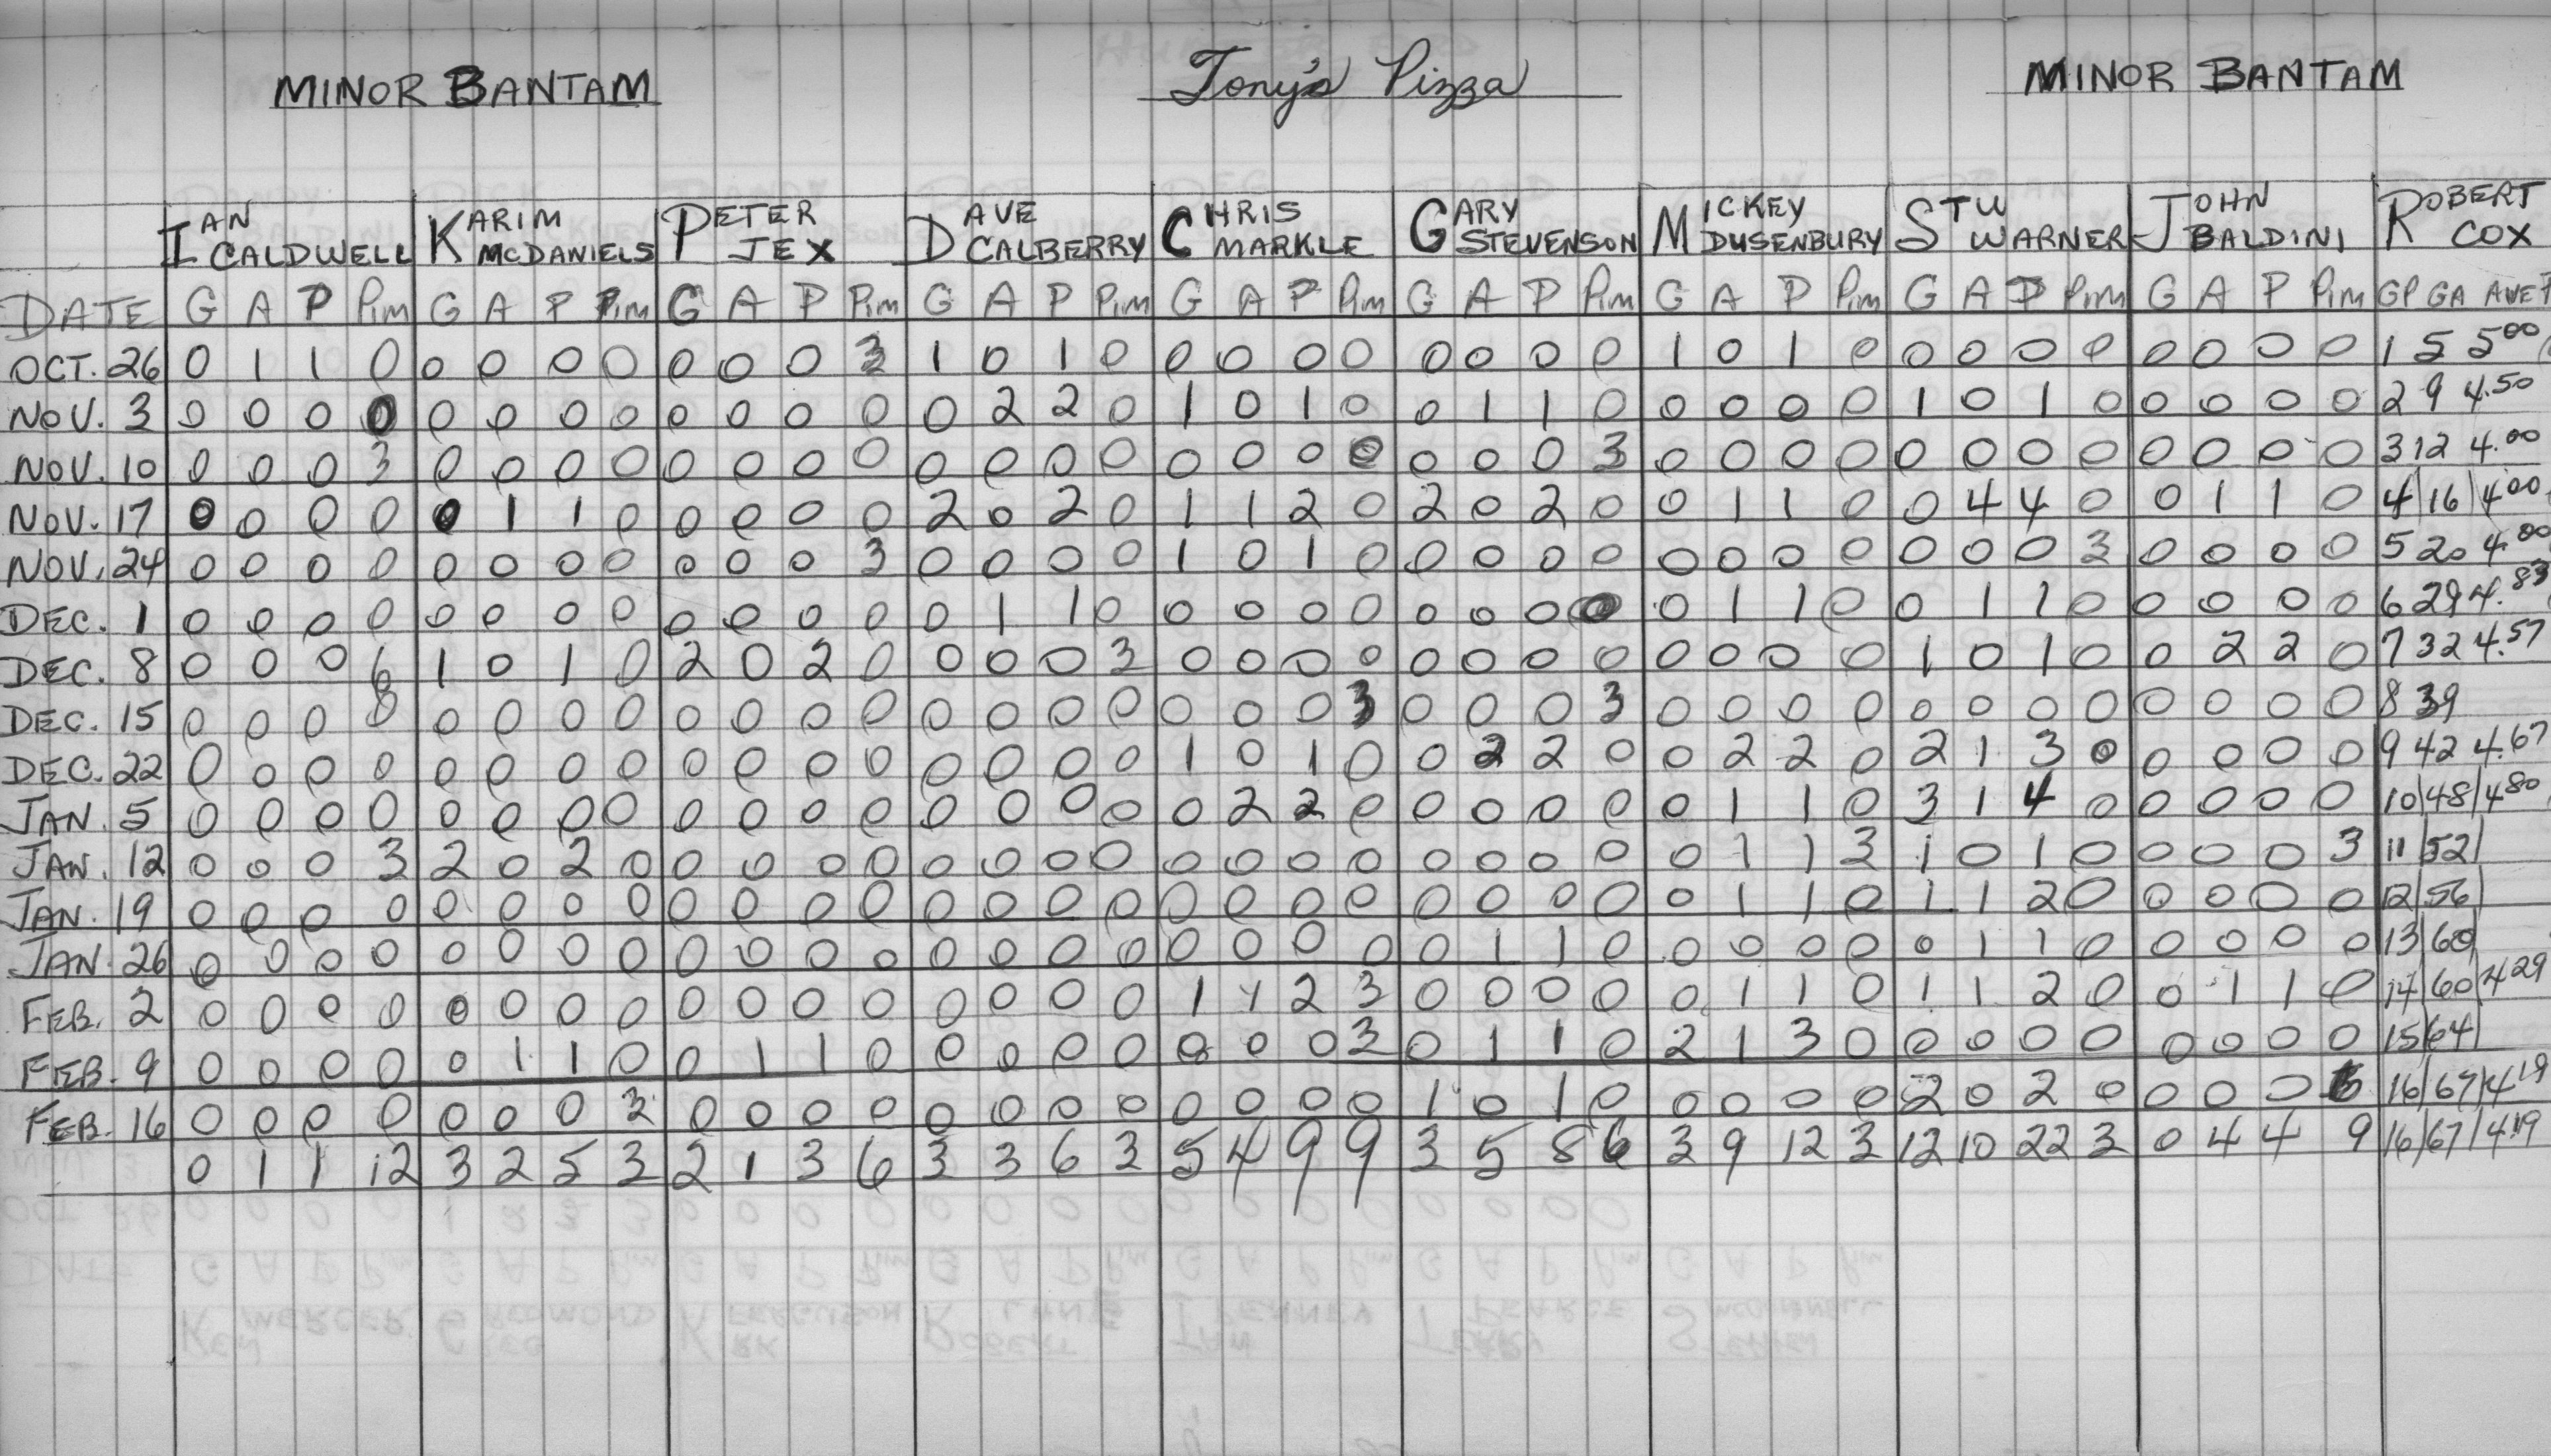 MINOR BANTAM Tony's Pizza MINOR BANTAM
IAN KARIM PETER DAVE CHRIS GARY MICKEY STU JOHN ROBERT
CALDWELL McDANIELS JEX CALBERRY MARKLE STEVENSON DUSENBURY WARNER BALDINI COX
DATE G A P Pim G A P Pim G A P Pim G A P Pim G A P Pim G A P Pim G A P Pim G A P Pim G A P Pim GP GA AVE
OCT. 26 0 1 1 0 0 0 0 0 0 0 0 3 1 0 1 0 0 0 0 0 0 0 0 0 1 0 1 0 0 0 0 0 0 0 0 0 1 5 5.00
NOV. 3 0 0 0 0 0 0 0 0 0 0 0 0 0 2 2 0 1 0 1 0 0 1 1 0 0 0 0 0 1 0 1 0 0 0 0 0 2 9 4.50
NOV. 10 0 0 0 3 0 0 0 0 0 0 0 0 0 0 0 0 0 0 0 0 0 0 0 3 0 0 0 0 0 0 0 0 0 0 0 0 3 12 4.00
NOV. 17 0 0 0 0 0 1 1 0 0 0 0 0 2 0 2 0 1 1 2 0 2 0 2 0 0 1 1 0 0 4 4 0 0 1 1 0 4 16 4.00
NOV. 24 0 0 0 0 0 0 0 0 0 0 0 3 0 0 0 0 1 0 1 0 0 0 0 0 0 0 0 0 0 0 0 3 0 0 0 0 5 20 4.00
DEC. 1 0 0 0 0 0 0 0 0 0 0 0 0 0 1 1 0 0 0 0 0 0 0 0 0 0 1 1 0 0 1 1 0 0 0 0 0 6 29 4.83
DEC. 8 0 0 0 6 1 0 1 0 2 0 2 0 0 0 0 3 0 0 0 0 0 0 0 0 0 0 0 0 1 0 1 0 0 2 2 0 7 32 4.57
DEC. 15 0 0 0 0 0 0 0 0 0 0 0 0 0 0 0 0 0 0 0 3 0 0 0 3 0 0 0 0 0 0 0 0 0 0 0 0 8 39
DEC. 22 0 0 0 0 0 0 0 0 0 0 0 0 0 0 0 0 1 0 1 0 0 2 2 0 0 2 2 0 2 1 3 0 0 0 0 0 9 42 4.67
JAN. 5 0 0 0 0 0 0 0 0 0 0 0 0 0 0 0 0 0 2 2 0 0 0 0 0 0 1 1 0 3 1 4 0 0 0 0 0 10 48 4.80
JAN. 12 0 0 0 3 2 0 2 0 0 0 0 0 0 0 0 0 0 0 0 0 0 0 0 0 0 1 1 3 1 0 1 0 0 0 0 3 11 52
JAN. 19 0 0 0 0 0 0 0 0 0 0 0 0 0 0 0 0 0 0 0 0 0 0 0 0 0 1 1 0 1 1 2 0 0 0 0 0 12 56
JAN. 26 0 0 0 0 0 0 0 0 0 0 0 0 0 0 0 0 0 0 0 0 0 1 1 0 0 0 0 0 0 1 1 0 0 0 0 0 13 60
FEB. 2 0 0 0 0 0 0 0 0 0 0 0 0 0 0 0 0 1 1 2 3 0 0 0 0 0 1 1 0 1 1 2 0 0 1 1 0 14 60 4.29
FEB. 9 0 0 0 0 0 1 1 0 0 1 1 0 0 0 0 0 0 0 0 3 0 1 1 0 2 1 3 0 0 0 0 0 0 0 0 0 15 64
FEB. 16 0 0 0 0 0 0 0 3 0 0 0 0 0 0 0 0 0 0 0 0 1 0 1 0 0 0 0 0 2 0 2 0 0 0 0 16 67 4.19
0 1 1 12 3 2 5 3 2 1 3 6 3 3 6 3 5 4 9 9 3 5 8 6 3 9 12 3 12 10 22 3 0 4 4 9 16 67 4.19